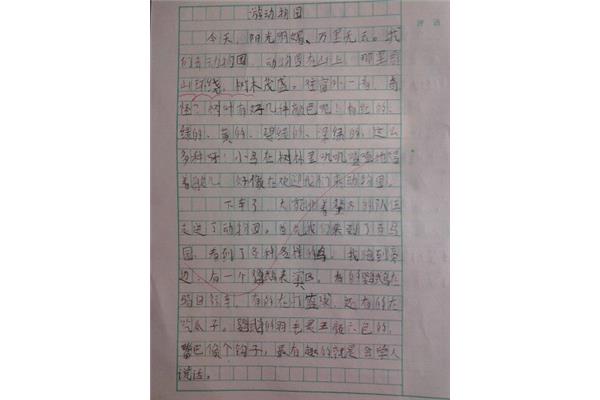 游动物园
今天,阳光明媚,万里无云。我
们去动物园,动物园在山上,那里
山环绕,树木茂盛。往窗外一看,奇
怪?树叶有好几种颜色呢!有红的、
绿的、黄的、深绿的,这么
多种呀!小鸟在树林里叽叽喳喳地唱
着歌儿,好像在欢迎我们来动物园。
下车了,大家排着整齐的队伍
走进了动物园。首先我们来到了百鸟
园,看到了各种各样的鸟。我跑到
边,有一个鹦鹉表演区。有的鹦鹉在
骑自行车,有的在,还有的在
吃瓜子。鹦鹉的羽毛是五颜六色的,
嘴巴像个钩子,最有趣的就是会学人
说话。
评语